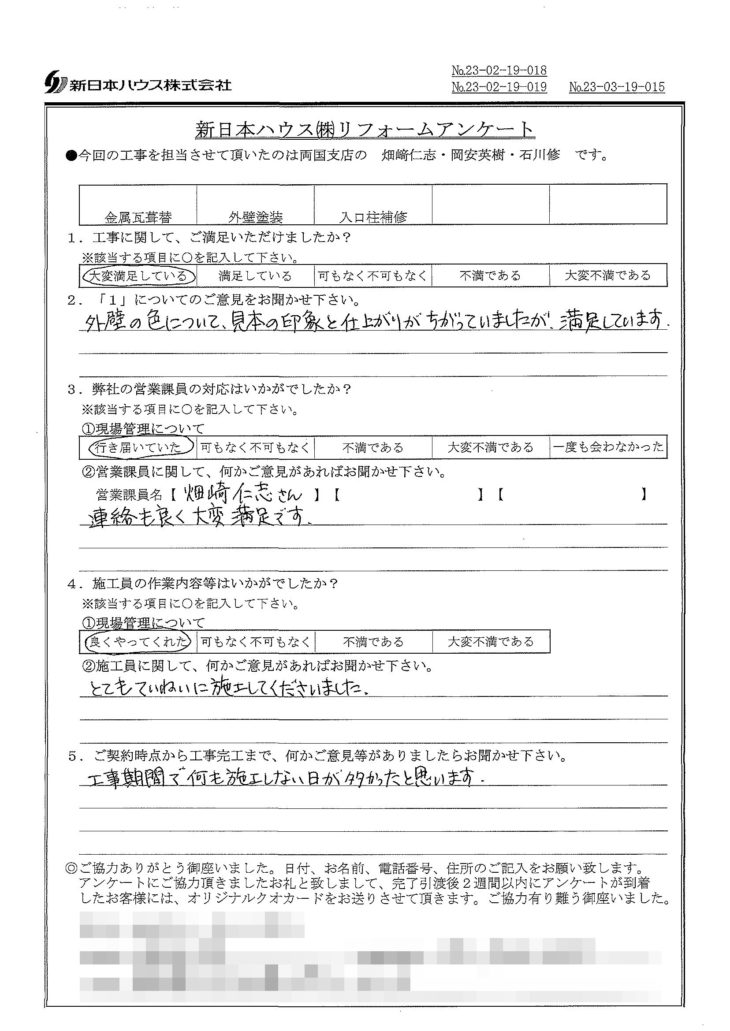 №23-02-19-018
新日本ハウス株式会社 №23-02-19-019 №23-03-19-015
新日本ハウス㈱リフォームアンケート
●今回の工事を担当させて頂いたのは両国支店の 畑﨑仁志・岡安英樹・石川修 です。
金属瓦葺替 外壁塗装 入口柱補修
1．工事に関して、ご満足いただけましたか？
※該当する項目に○を記入して下さい。
大変満足している 満足している 可もなく不可もなく 不満である 大変不満である
2．「1」についてのご意見をお聞かせ下さい。
外壁の色について、見本の印象と仕上がりがちがっていましたが、満足しています.
3．弊社の営業課員の対応はいかがでしたか？
※該当する項目に○を記入して下さい。
①現場管理について
行き届いていた 可もなく不可もなく 不満である 大変不満である 一度も会わなかった
②営業課員に関して、何かご意見があればお聞かせ下さい。
営業課員名【 畑崎仁志さん 】【 】【 】
連絡も良く大変満足です.
4．施工員の作業内容等はいかがでしたか？
※該当する項目に○を記入して下さい。
①現場管理について
良くやってくれた 可もなく不可もなく 不満である 大変不満である
②施工員に関して、何かご意見があればお聞かせ下さい。
とてもていねいに施工してくださいました.
5．ご契約時点から工事完工まで、何かご意見等がありましたらお聞かせ下さい。
工事期間で何も施工しない日が多かったと思います.
◎ご協力ありがとう御座いました。日付、お名前、電話番号、住所のご記入をお願い致します。
アンケートにご協力頂きましたお礼と致しまして、完了引渡後2週間以内にアンケートが到着
したお客様には、オリジナルクオカードをお送りさせて頂きます。ご協力有り難う御座いました。